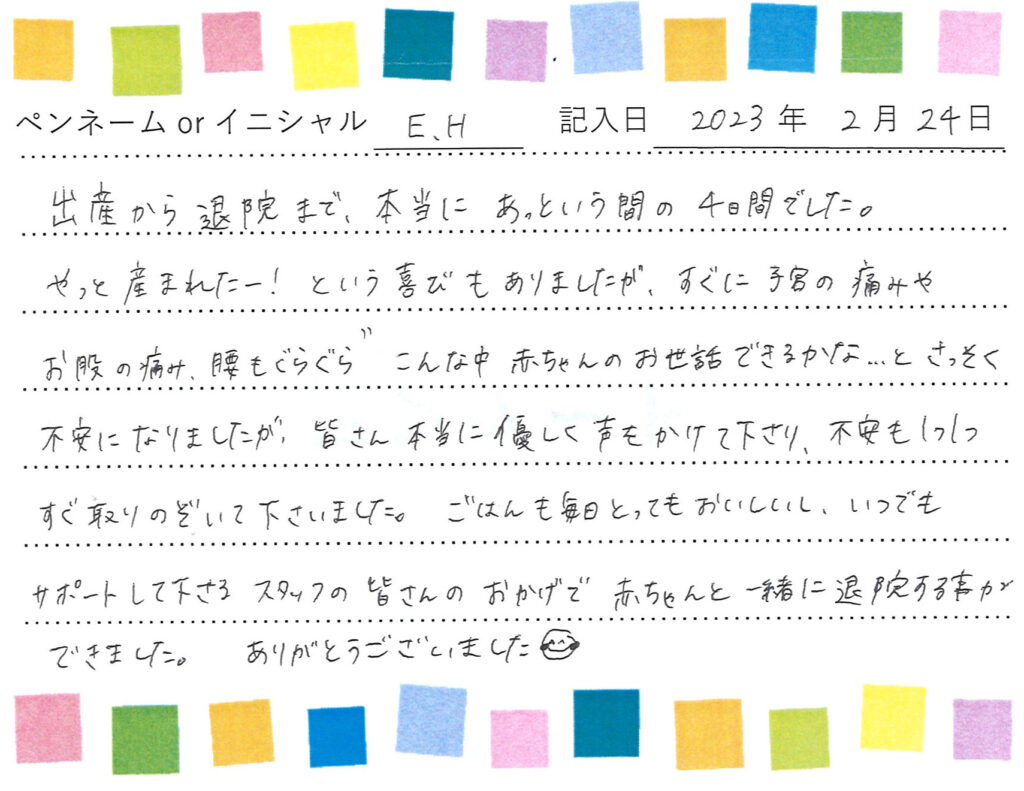 ペンネーム or イニシャル E.H 記入日 2023年 2月 24日
出産から退院まで、本当に あっという間の 4日間でした。
やっと産まれたー！という喜びもありましたが、すぐに子宮の痛みや
お股の痛み、腰もぐらぐら〃 こんな中 赤ちゃんのお世話できるかな…と さっそく
不安になりましたが、皆さん本当に優しく声をかけて下さり、不安も1つ1つ
すぐ取りのぞいて下さいました。 ごはんも毎日とってもおいしいし、いつでも
サポートして下さるスタッフの皆さんのおかげで 赤ちゃんと一緒に退院する事が
できました。 ありがとうございました